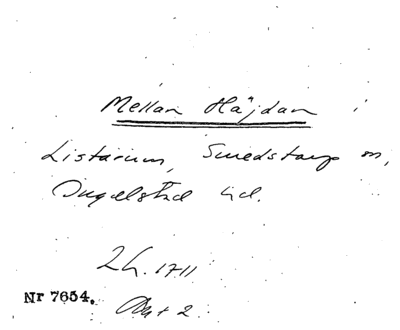 Mellan Häjdan i
Listarum, Smedstorp sn,
Ingelstad hd.
2h. 1711
Nr 7654. Akt 2.